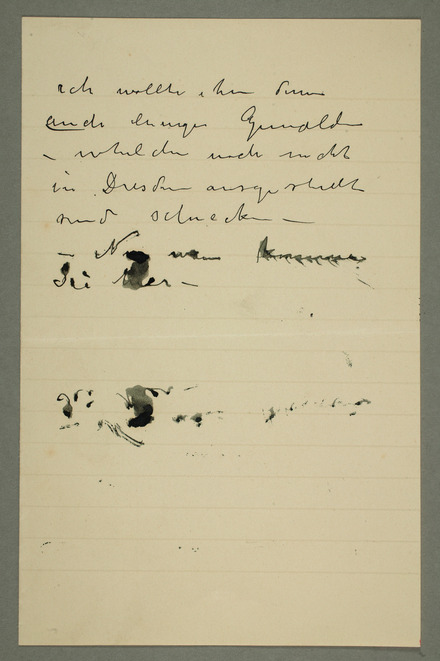 ich wollte ihm dann
auch einige Gemälde
– welche noch nicht
in Dresden ausgestellt
sind schicken –
– Nun wann
Sie her –